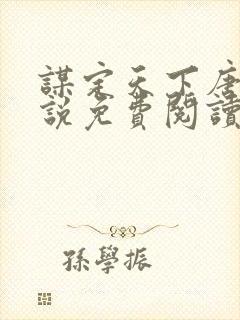 謀定天下唐
說免費閱讀
孫學振